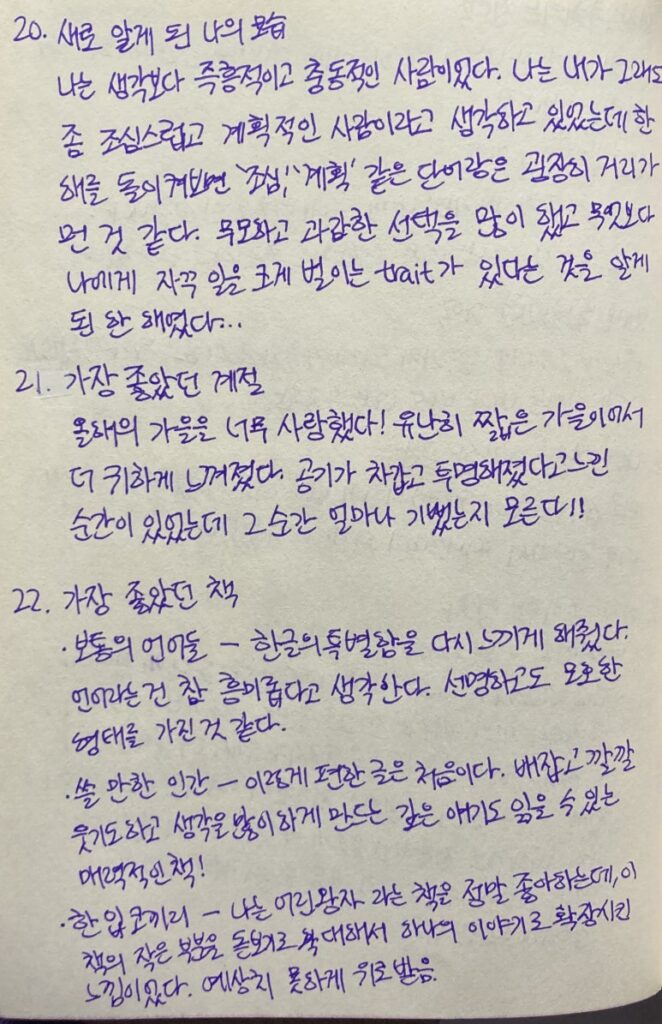 20. 새로 알게 된 나의 모습
나는 생각보다 즉흥적이고 충동적인 사람이었다. 나는 내가 그래도
좀 조심스럽고 계획적인 사람이라고 생각하고 있었는데 한
해를 돌이켜보면 '조심', '계획' 같은 단어랑은 굉장히 거리가
먼 것 같다. 무모하고 과감한 선택을 많이 했고 무엇보다
나에게 자꾸 일을 크게 벌이는 trait가 있다는 것을 알게
된 한 해였다...
21. 가장 좋았던 계절
올해의 가을을 너무 사랑했다! 유난히 짧은 가을이어서
더 귀하게 느껴졌다. 공기가 차갑고 투명해졌다고 느낀
순간이 있었는데 그 순간 얼마나 기뻤는지 모른다!!
22. 가장 좋았던 책
· 보통의 언어들 - 한글의 특별함을 다시 느끼게 해줬다.
언어라는 건 참 흥미롭다고 생각한다. 선명하고도 모호한
형태를 가진 것 같다.
· 쓸 만한 인간 - 이렇게 편한 글은 처음이다. 배잡고 깔깔
웃기도하고 생각을 많이하게 만드는 깊은 얘기도 읽을 수 있는
매력적인 책!
· 한 입 코끼리 - 나는 어린왕자 라는 책을 정말 좋아하는데, 이
책의 작은 부분을 돋보기로 확대해서 하나의 이야기로 확장시킨
느낌이었다. 예상치 못하게 위로 받음.